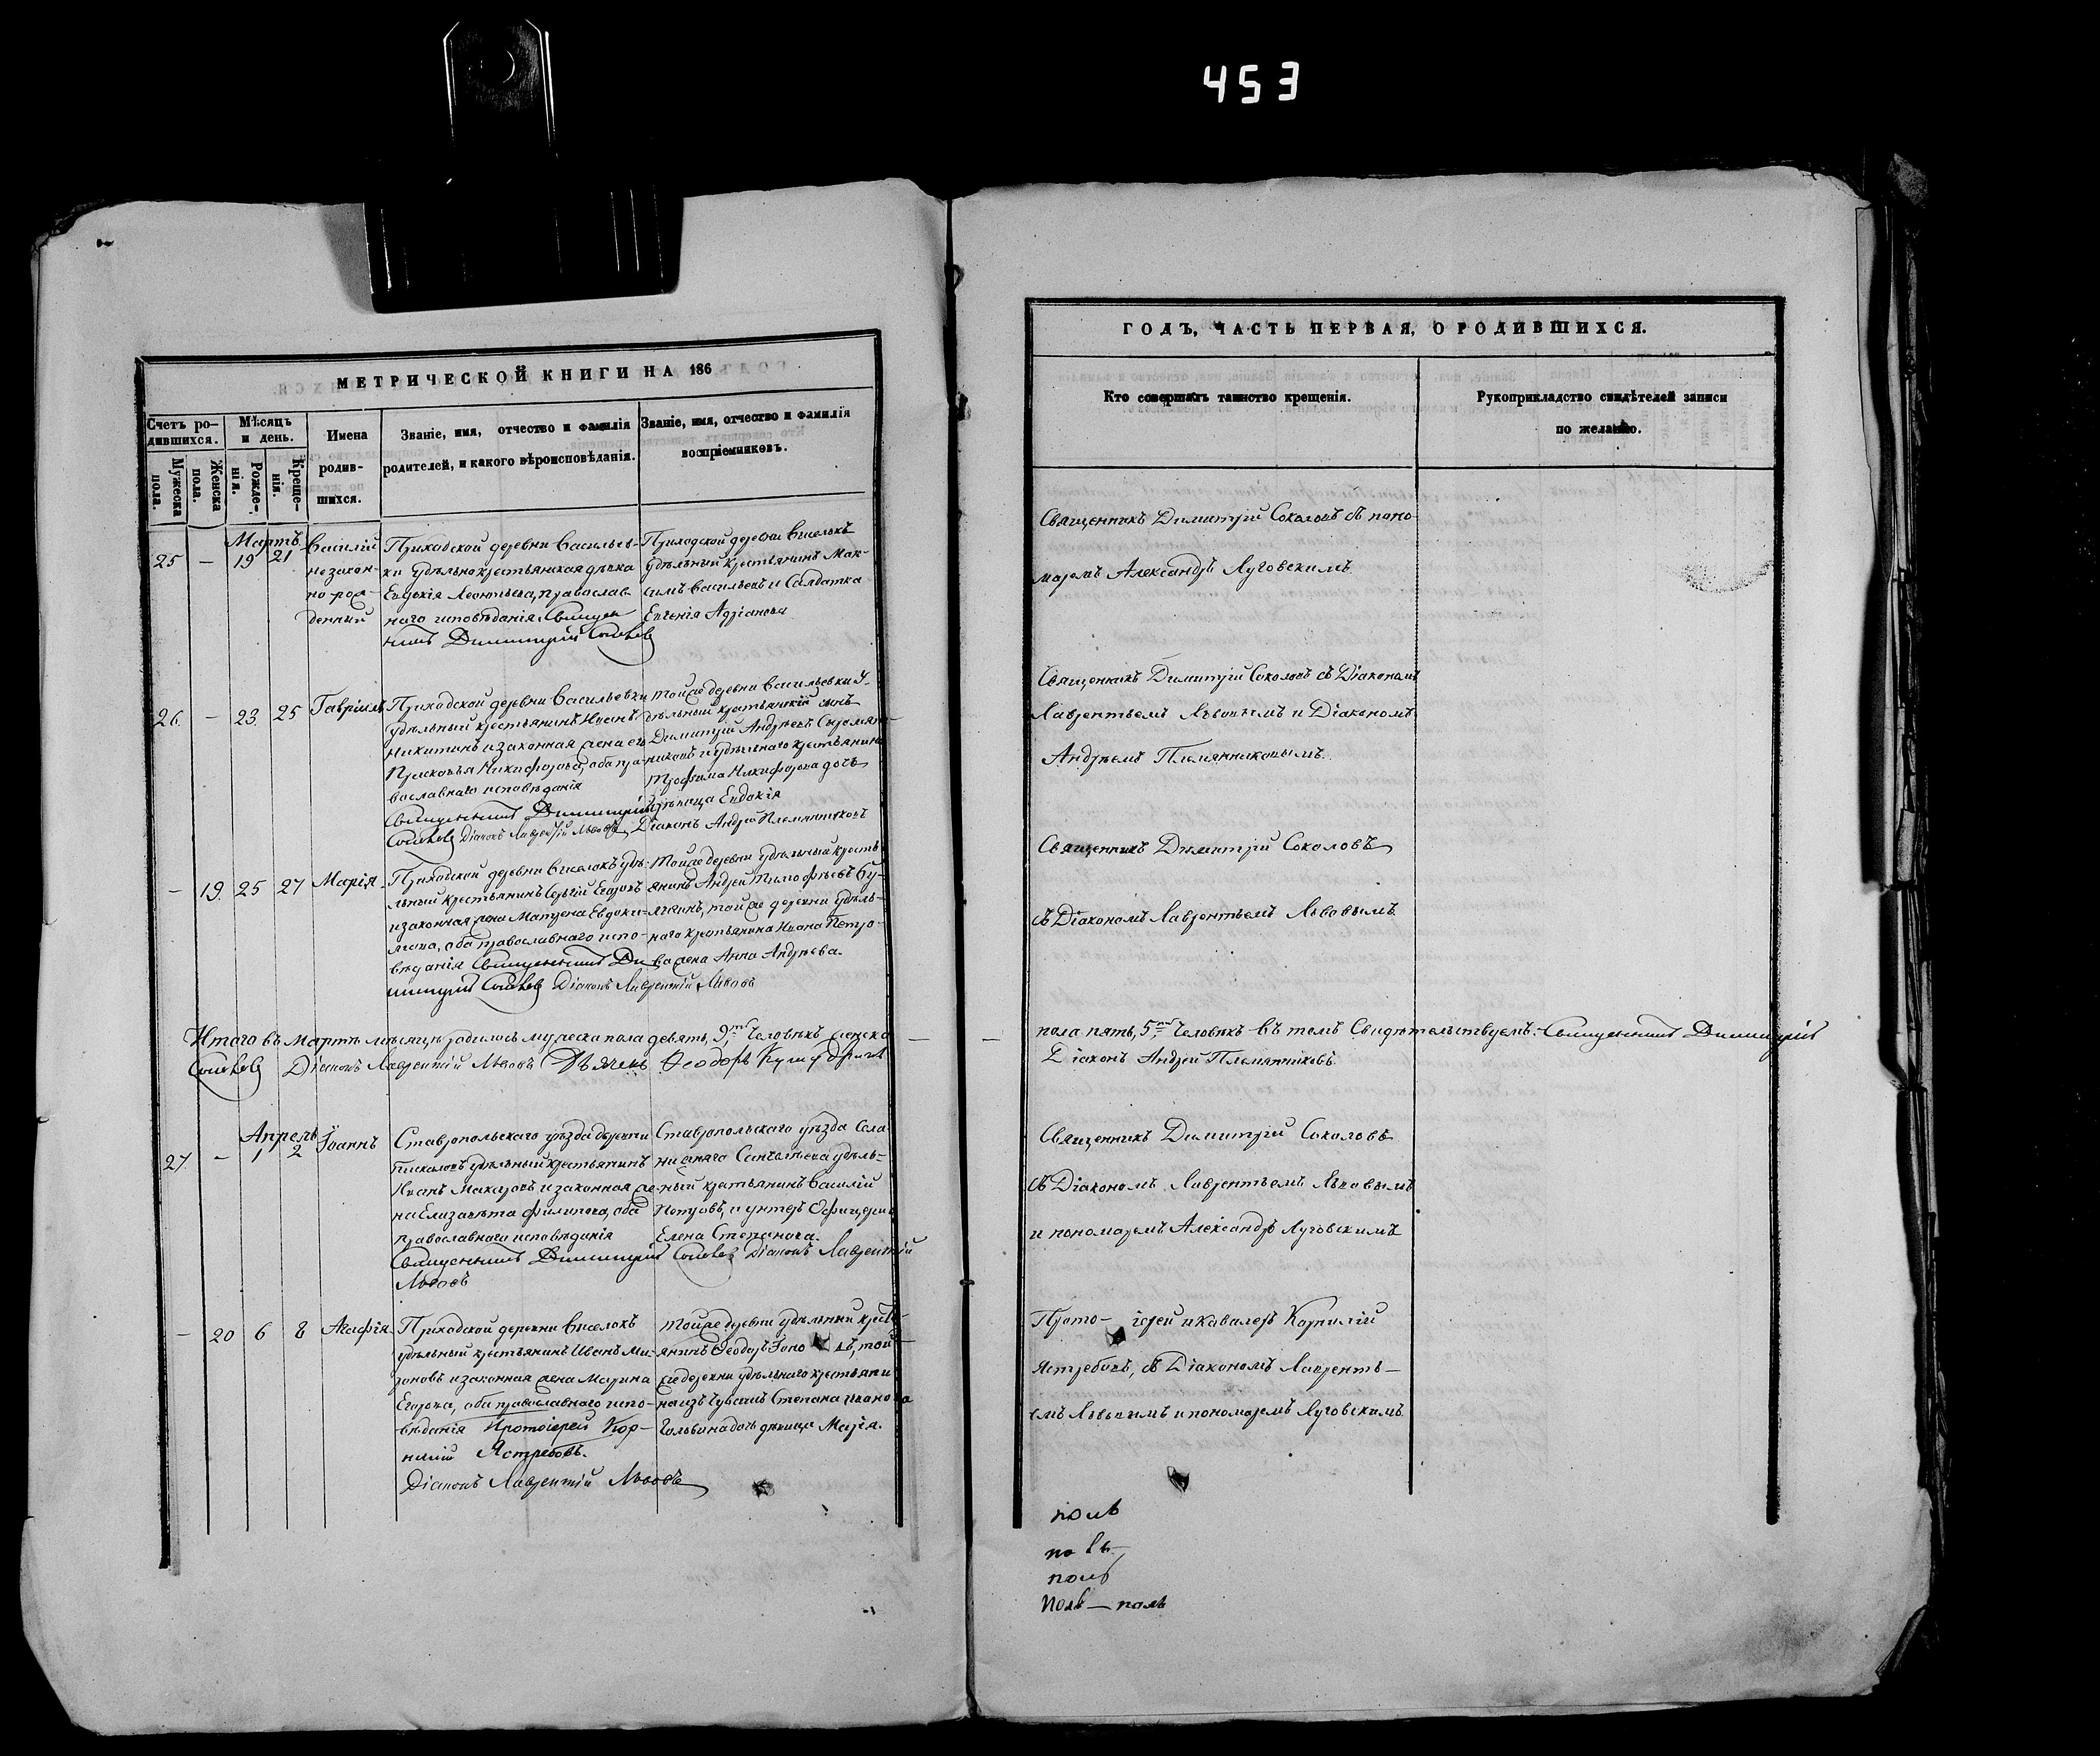 453
МЕТРИЧЕСКОЙ КНИГИ НА 186
Счетъ ро-
дившихся.
Мужеска
пола.
Женска
пола.
Мѣсяцъ
и день.
Рожде-
нія.
Креще-
нія.
Имена
родив-
шихся.
Званіе, имя, отчество и фамилія
родителей, и какого вѣроисповѣданія.
Званіе, имя, отчество и фамилія
воспріемниковъ.
Мартъ
25 — 19 21
Василій
незакон-
но рож-
денный
Приходской деревни Васильев-
ки удѣльнокрестьянская дѣвка
Евдокія Леонтьева, православ-
наго исповѣданія Священ-
никъ Димитрій Соколовъ
Приходской деревни Выселокъ
удѣльный крестьянинъ Мак-
симъ Васильевъ и Салдатка
Евгенія Адріанова
26 — 23 25
Гавріилъ
Приходской деревни Васильевки
удѣльный крестьянинъ
Никитинъ и законная жена его
Прасковья Никифорова, оба пра-
вославнаго исповѣданія
Священникъ Димитрій
Соколовъ Діаконъ Лаврентій Львовъ
Тойже деревни Васильевки у-
дѣльный крестьянскій сынъ
Димитрій Андреевъ Сыромят-
никовъ и удѣльнаго крестьянина
Трофима Никифорова дочь
дѣвица Евдокія
Діаконъ Андрей Племянниковъ
— 19 25 27
Марія
Приходской деревни Выселокъ удѣ-
льный крестьянинъ Сергій Егоровъ
и законная жена Матрена Евдоки-
мова, оба православнаго испо-
вѣданія Священникъ Ди-
митрій Соколовъ Діаконъ Лаврентій Львовъ
Тойже деревни удѣльный кресть-
янинъ Андрей Тимофѣевъ
тойже деревни удѣль-
наго крестьянина Ивана Петро-
ва жена Анна Андрѣева.
Итого въ Мартѣ мѣсяцѣ родилось мужеска пола девять, 9ть Человѣкъ женска
Соколовъ Діаконъ Лаврентій Львовъ Дьячекъ Ѳеодоръ
Апрель
27 — 1 2
Іоаннъ
Ставропольскаго уѣзда деревни
Пискаловъ удѣльный крестьянинъ
Иванъ Макаровъ и законная же-
на Елизавета Филипова, оба
православнаго исповѣданія
Священникъ Димитрій Соколовъ Діаконъ Лаврентій
Львовъ
Ставропольскаго уѣзда Села
Нижняго Санчелѣева удѣль-
ный крестьянинъ Василій
Петровъ, и унтеръ
Елена Степанова.
— 20 6 8
Агафія
Приходской деревни Выселокъ
удѣльный крестьянинъ Иванъ Ми-
роновъ и законная жена Марина
Егорова, оба православнаго испо-
вѣданія Протоіерей Кор-
нилій Ястребовъ.
Діаконъ Лаврентій Львовъ
Тойже деревни удѣльный крест-
янинъ Ѳеодоръ той-
же деревни удѣльнаго крестьяни-
на изъ Чувашъ Степана Иванова
Головина дочь дѣвица Марія.
ГОДЪ, ЧАСТЬ ПЕРВАЯ, О РОДИВШИХСЯ.
Кто совершалъ таинство крещенія.
Рукоприкладство свидѣтелей записи
по желанію.
Священникъ Димитрій Соколовъ съ поно-
маремъ Александръ Луговскимъ.
Священникъ Димитрій Соколовъ съ Діакономъ
Лаврентьемъ Львовымъ и Діакономъ
Андрѣемъ Племянниковымъ.
Священникъ Димитрій Соколовъ
съ Діакономъ Лаврентьемъ Львовымъ.
пола пять, 5ть Человѣкъ въ томъ Свидѣтельствуемъ: Священникъ Димитрій
Діаконъ Андрей Племянниковъ.
Священникъ Димитрій Соколовъ
съ Діакономъ Лаврентьемъ Львовымъ
и пономаремъ Александръ Луговскимъ
Прото- іерей и Кавалеръ Корнилій
Ястребовъ, съ Діакономъ Лавренть-
емъ Львовымъ и пономаремъ Луговскимъ.